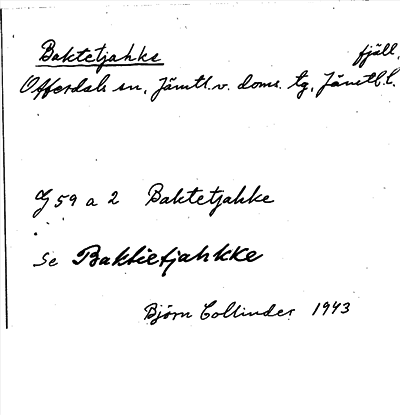 Baktetjahke fjäll.
Offerdals sn, Jämtl. v. doms. tg, Jämtl. l.
G 59 a 2 Baktetjahke
Se Baktietjahkke
Björn Collinder 1943